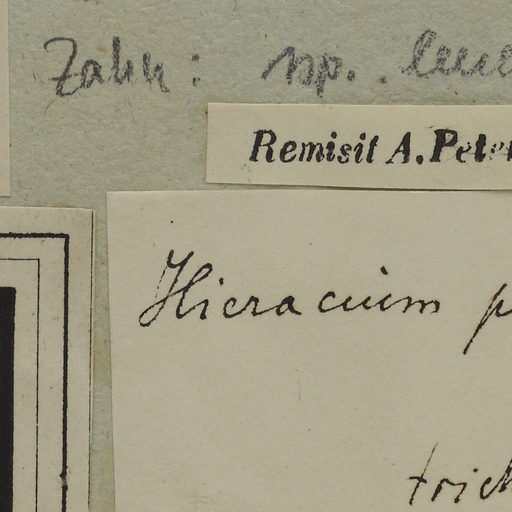 Zahn: sp.
Remisit A. Peter
Hieracium p
trich